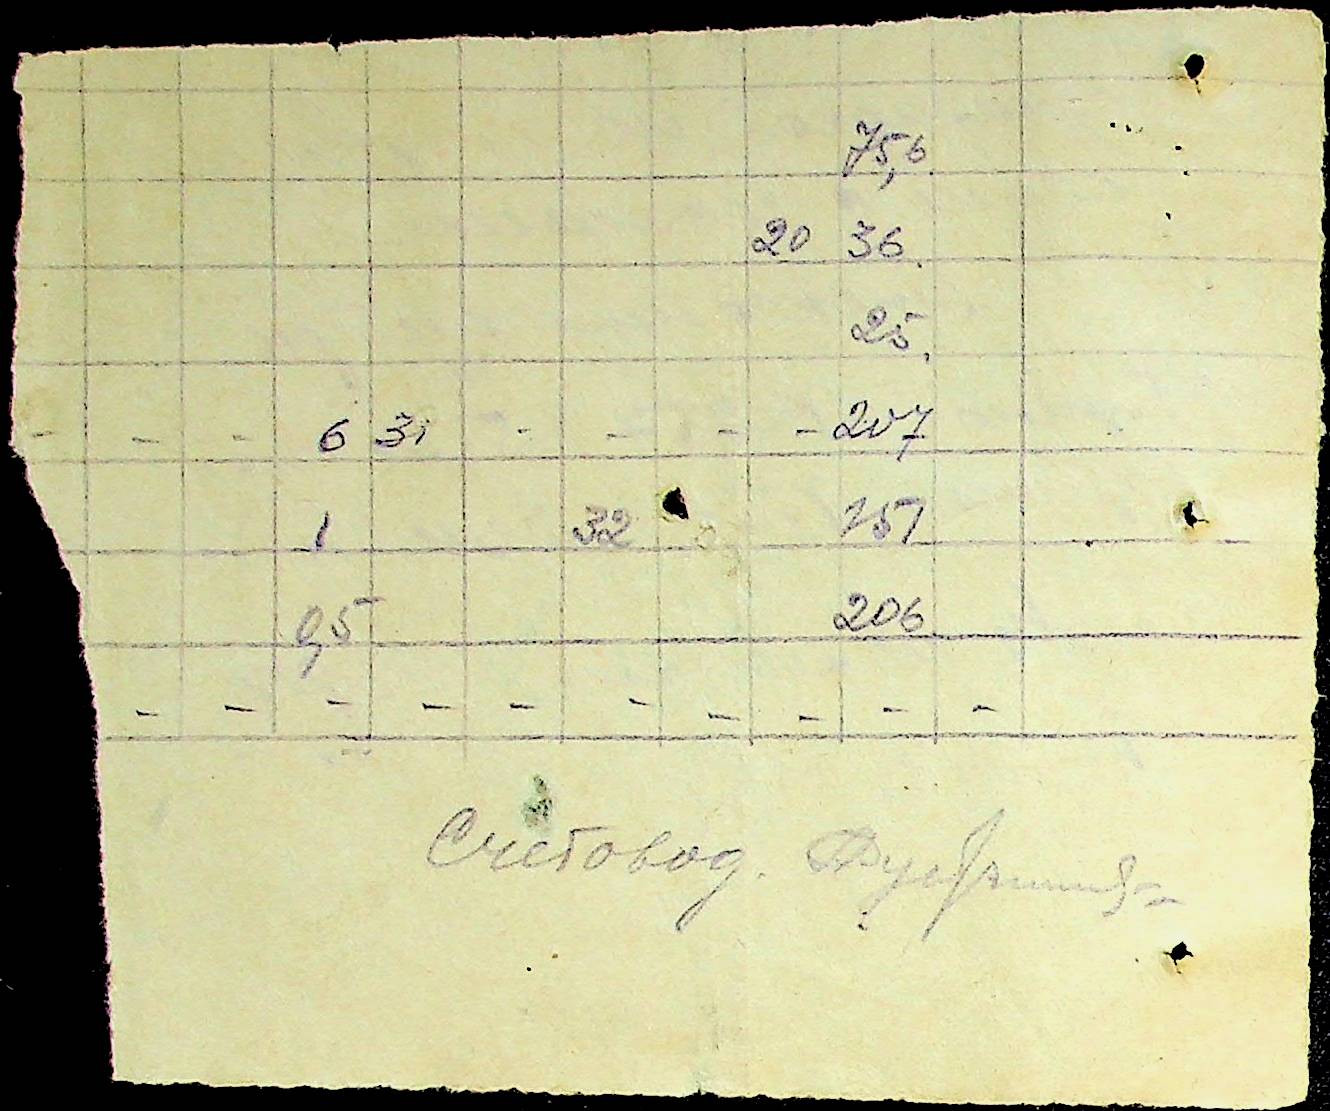 75,6
20 36.
25.
- - - 6 31 - - - - 207
1 32 151
0,5 206
- - - - - - - - - -
Счетовод.